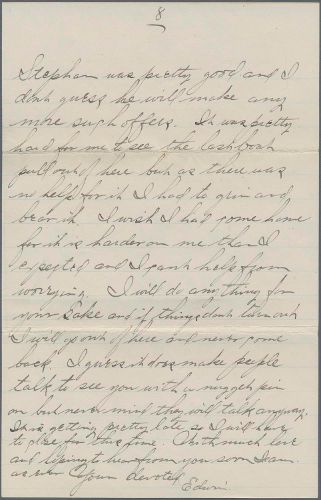 8
Stephan was pretty good and I
don't guess he will make any
more such offers. It was pretty
hard for me to see the last boat
pull out of here but as there was
no help for it I had to grin and
bear it. I wish I had gone home
for it is harder on me than I
expected and I can't help from
worrying. I will do anything for
your sake and if things don't turn out
I will go out of here and never come
back. I guess it does make people
talk to see you with a nugget pin
on but never mind they will talk anyway.
It is getting pretty late so I will have
to close for this time. With much love
and hoping to hear from you soon I am
as ever Your devoted
Edwin